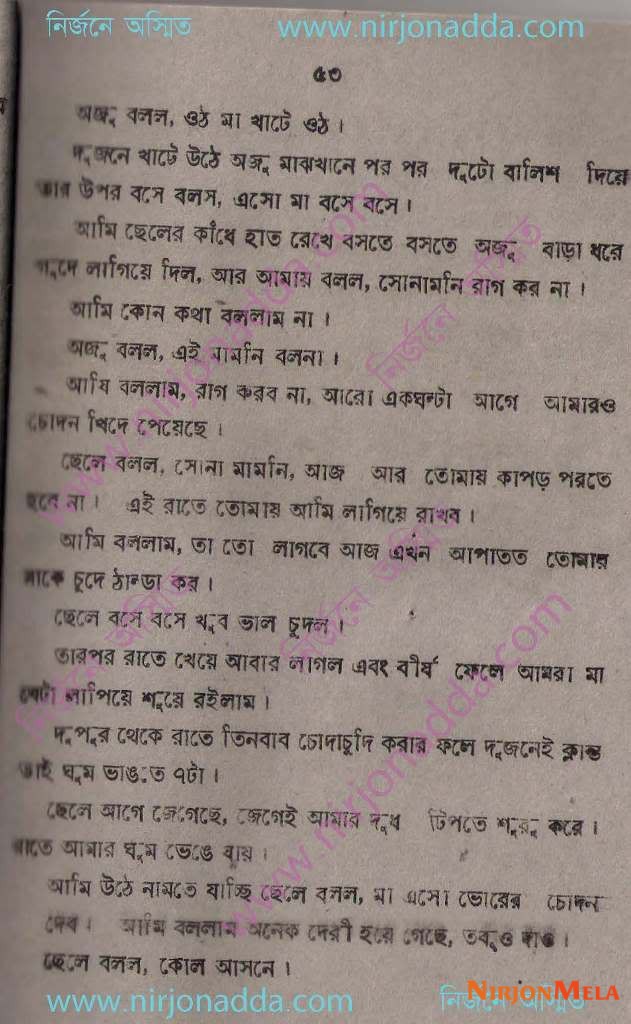 নির্জনে অস্মিত www.nirjonadda.com
৫৩
অজু বলল, ওঠ মা খাটে ওঠ।
দুজনে খাটে উঠে অজু মাঝখানে পর পর দুটো বালিশ দিয়ে
তার উপর বসে বলস, এসো মা বসে বসে।
আমি ছেলের কাঁধে হাত রেখে বসতে বসতে অজু বাড়া ধরে
গুদে লাগিয়ে দিল, আর আমায় বলল, সোনামনি রাগ কর না।
আমি কোন কথা বললাম না।
অজু বলল, এই মামনি বলনা।
আমি বললাম, রাগ করব না, আরো একঘন্টা আগে আমারও
চোদন খিদে পেয়েছে।
ছেলে বলল, সোনা মামনি, আজ আর তোমায় কাপড় পরতে
হবে না। এই রাতে তোমায় আমি লাগিয়ে রাখব।
আমি বললাম, তা তো লাগবে আজ এখন আপাতত তোমার
মাকে চুদে ঠান্ডা কর।
ছেলে বসে বসে খুব ভাল চুদল।
তারপর রাতে খেয়ে আবার লাগল এবং বীর্য ফেলে আমরা মা
বেটা লাগিয়ে শুয়ে রইলাম।
দুপুর থেকে রাতে তিনবাব চোদাচুদি করার ফলে দুজনেই ক্লান্ত
তাই ঘুম ভাঙতে ৭টা।
ছেলে আগে জেগেছে, জেগেই আমার দুধ টিপতে শুরু করে।
তাতে আমার ঘুম ভেঙে যায়।
আমি উঠে নামতে যাচ্ছি ছেলে বলল, মা এসো ভোরের চোদন
দেব। আমি বললাম অনেক দেরী হয়ে গেছে, তবুও দাও।
ছেলে বলল, কোল আসনে।
www.nirjonadda.com নির্জনে অস্মিত
NIRJONMELA
www.nirjonadda.com
নির্জনে অস্মিত